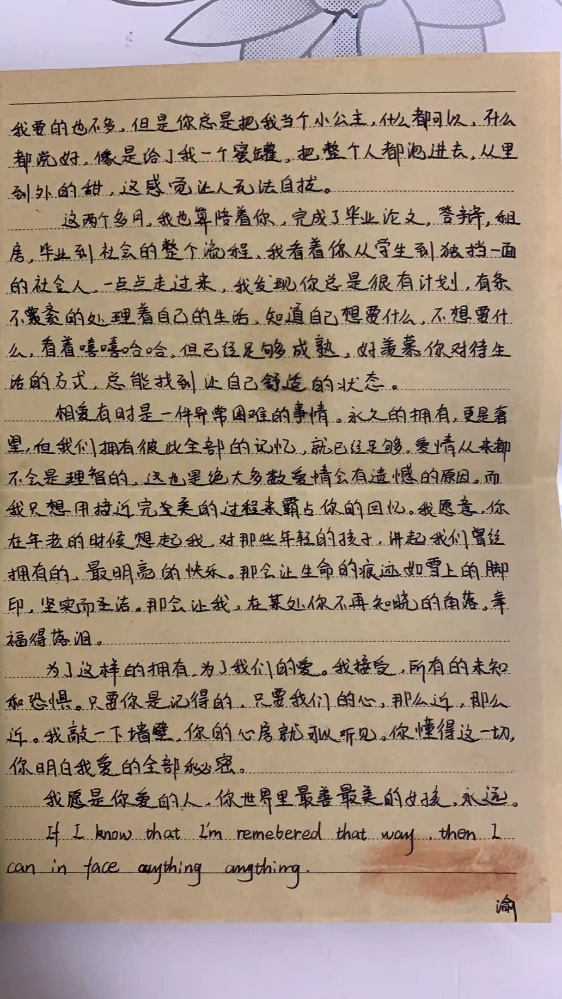 我要的也不多，但是你总是把我当个小公主，什么都可以，什么
都说好，像是给了我一个蜜罐，把整个人都泡进去，从里
到外的甜，这感觉让人无法自拔。
这两个多月，我也算陪着你，完成了毕业论文，答辩，租
房，毕业到社会的整个流程，我看着你从学生到独挡一面
的社会人，一点点走过来，我发现你总是很有计划，有条
不紊的处理着自己的生活，知道自己想要什么，不想要什
么，看着嘻嘻哈哈，但已经足够成熟，好羡慕你对待生
活的方式，总能找到让自己舒适的状态。
相爱有时是一件异常困难的事情。永久的拥有，更是奢
望，但我们拥有彼此全部的记忆，就已经足够。爱情从来都
不会是理智的，这也是绝大多数爱情会有遗憾的原因。而
我只想用接近完全美的过程来霸占你的回忆。我愿意，你
在年老的时候想起我，对那些年轻的孩子，讲起我们曾经
拥有的，最明亮的快乐。那会让生命的痕迹如雪上的脚
印，坚实而圣洁。那会让我，在某处你不再知晓的角落，幸
福得落泪。
为了这样的拥有，为了我们的爱。我接受，所有的未知
和恐惧。只要你是记得的，只要我们的心，那么近，那么
近。我敲一下墙壁，你的心房就可以听见。你懂得这一切，
你明白我爱的全部秘密。
我愿是你爱的人，你世界里最善最美的女孩，永远。
If I know that I'm remebered that way, then I
can in face anything anything.
渝